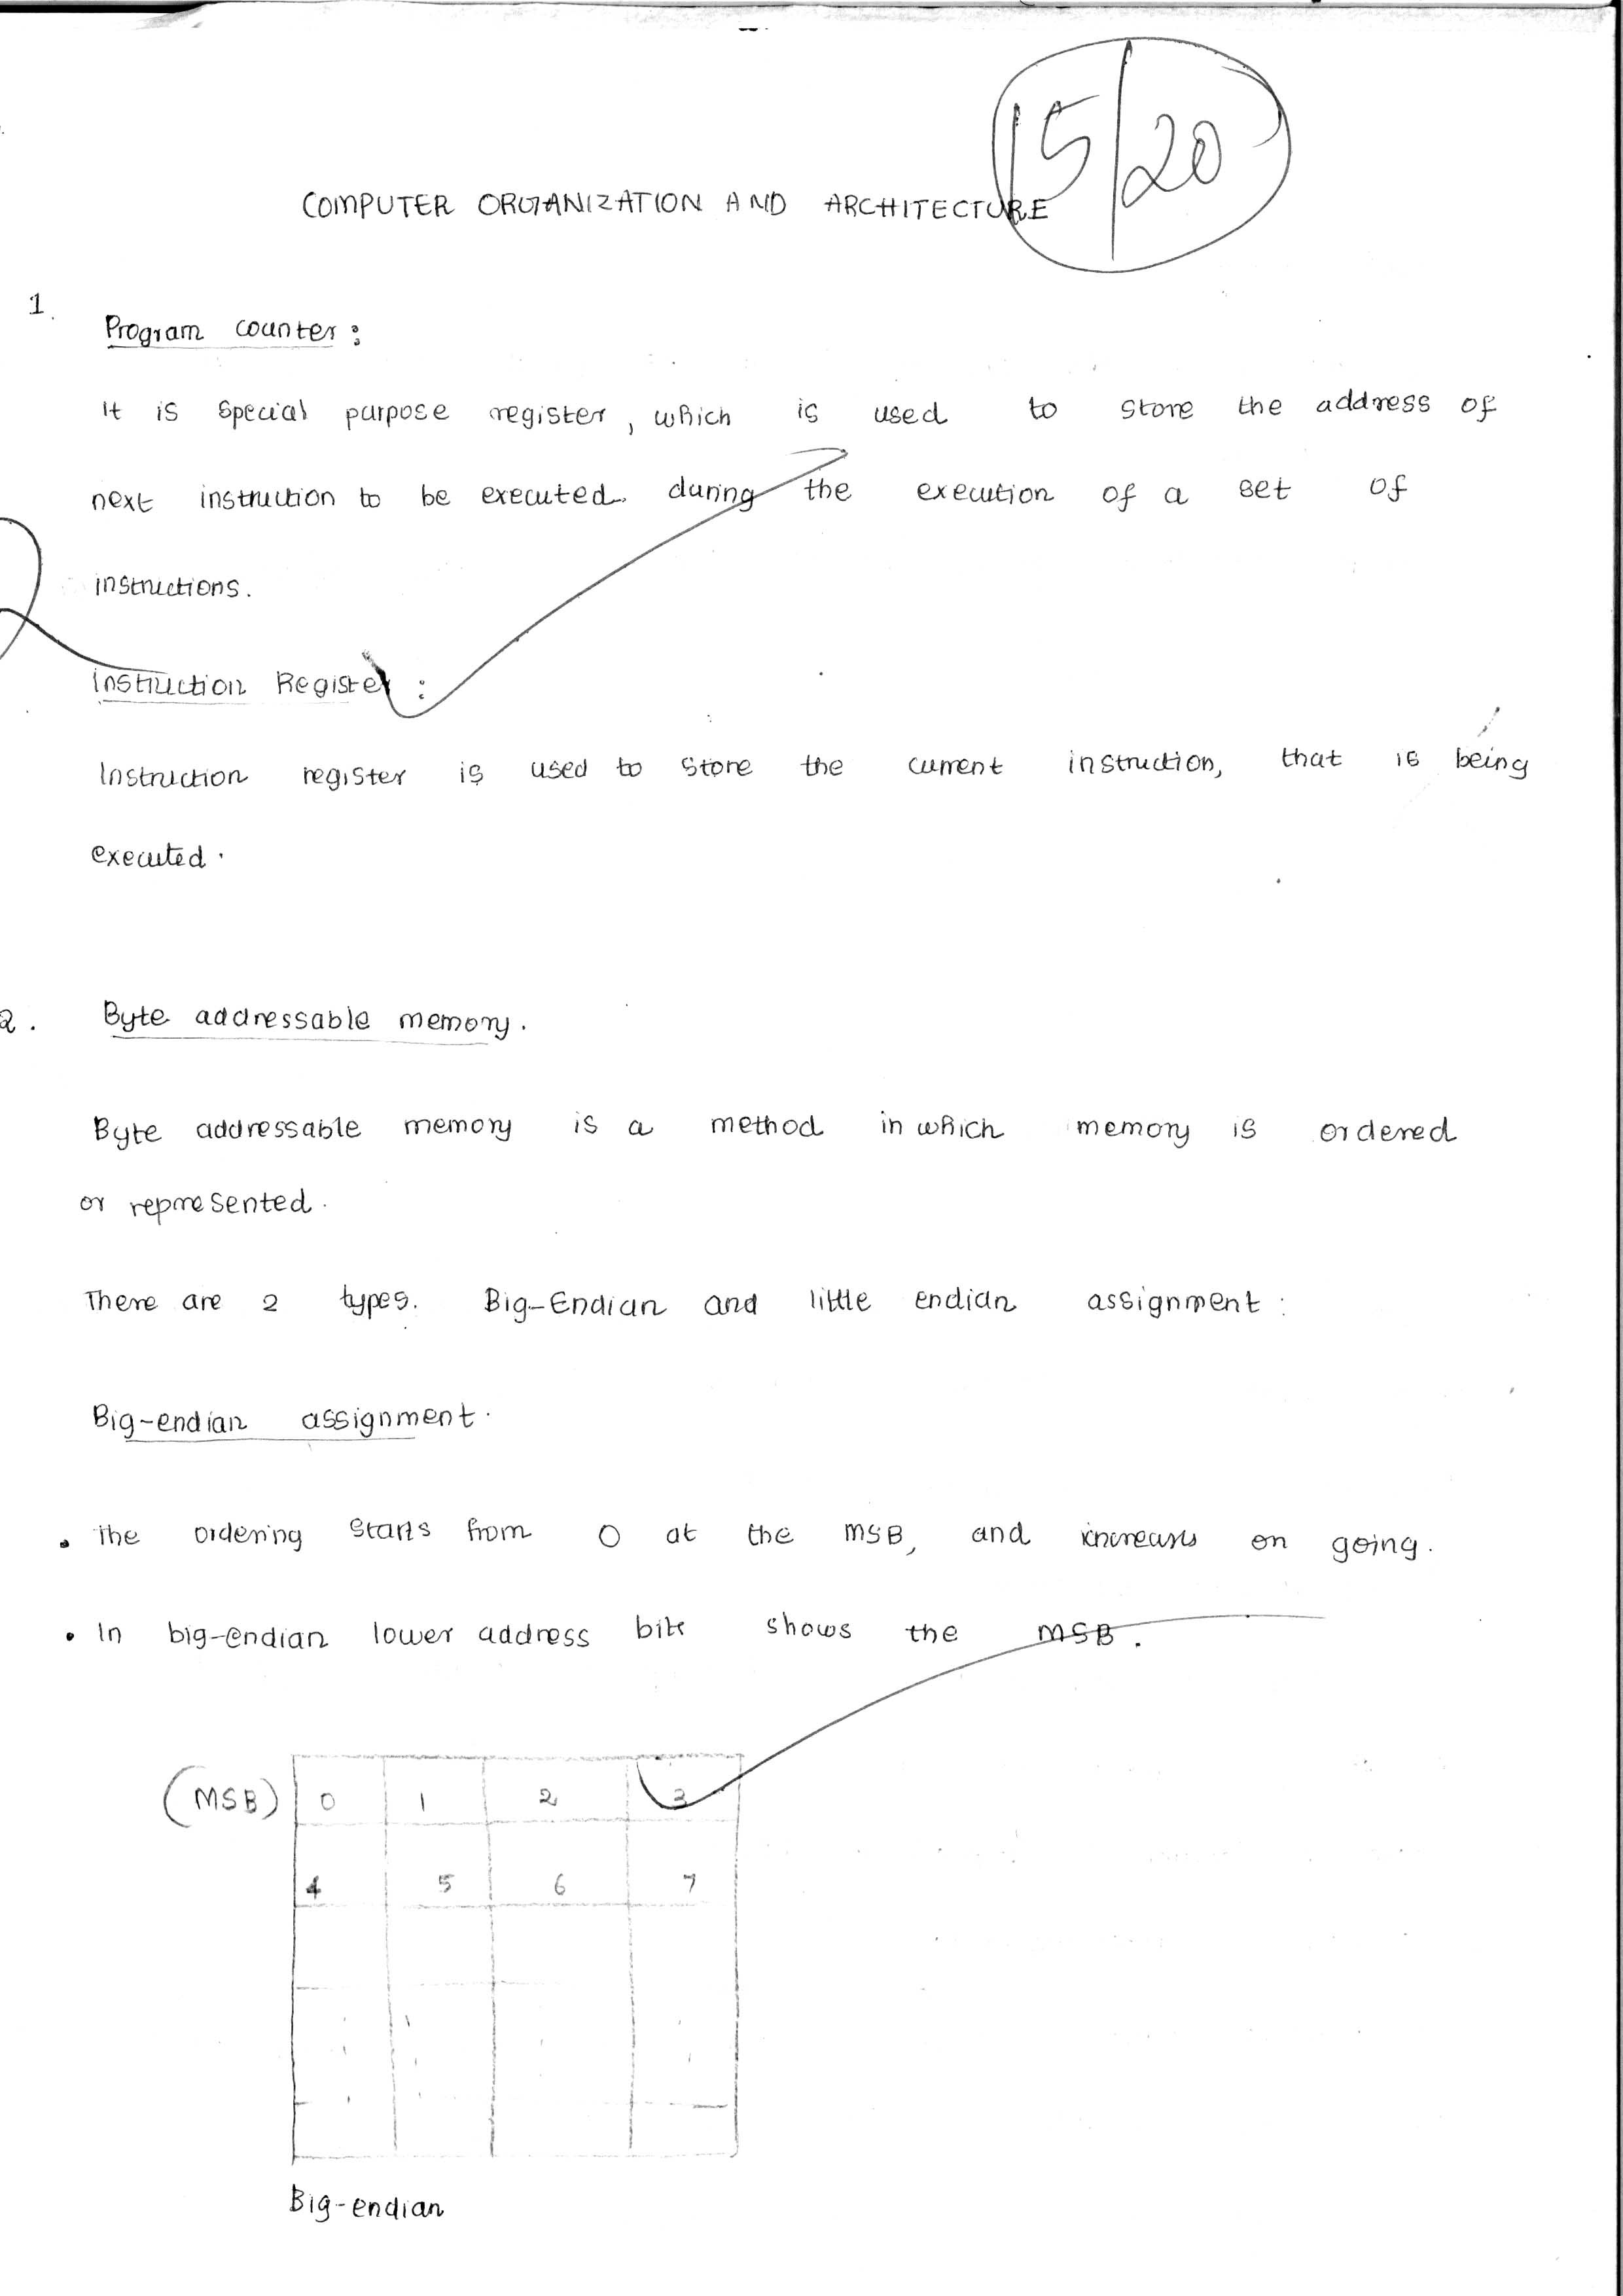 15/20
COMPUTER ORGANIZATION AND ARCHITECTURE
1.
Program counter:
It is special purpose register, which is used to store the address of
next instruction to be executed. during the execution of a set of
instructions.
Instruction Register:
Instruction register is used to store the current instruction, that is being
executed.
2. Byte addressable memory.
Byte addressable memory is a method in which memory is ordered
or represented.
There are 2 types. Big-Endian and little endian assignment:
Big-endian assignment.
• The ordering starts from 0 at the MSB, and increases on going.
• In big-endian lower address shows the MSB.
(MSB) 0 1 2 3
4 5 6 7
Big-endian